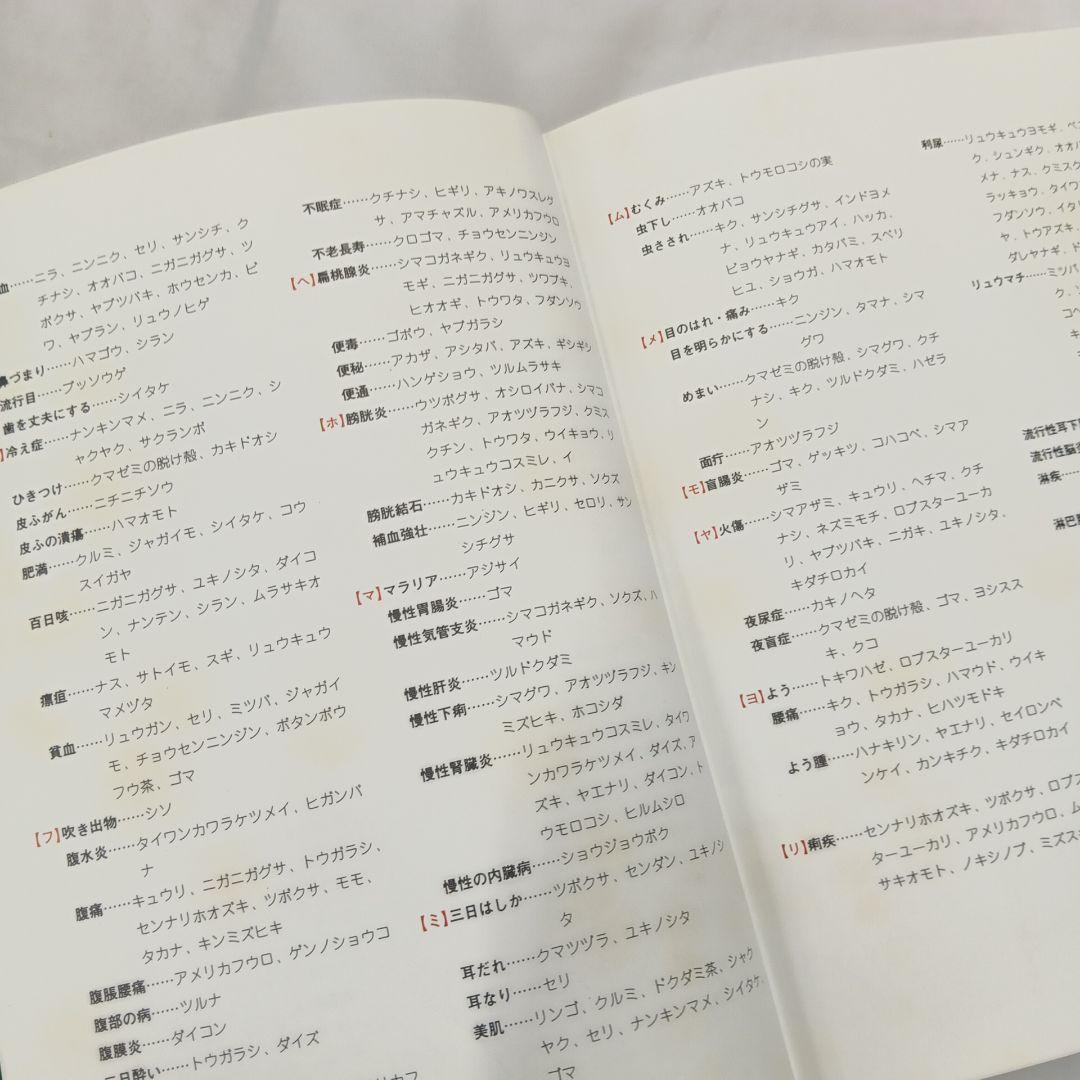 血……ニラ、ニンニク、セリ、サンシチ、ク
チナシ、オオバコ、ニガニガグサ、ツ
ボクサ、ヤブツバキ、ホウセンカ、ビ
ワ、ヤブラン、リュウノヒゲ
鼻づまり……ハマゴウ、シラン
流行目……ブッソウゲ
歯を丈夫にする……シイタケ
】冷え症……ナンキンマメ、ニラ、ニンニク、シ
ャクヤク、サクランボ
ひきつけ……クマゼミの脱け殻、カキドオシ
皮ふがん……ニチニチソウ
皮ふの潰瘍……ハマオモト
肥満……クルミ、ジャガイモ、シイタケ、コウ
スイガヤ
百日咳……ニガニガグサ、ユキノシタ、ダイコ
ン、ナンテン、シラン、ムラサキオ
モト
瘭疽……ナス、サトイモ、スギ、リュウキュウ
マメヅタ
貧血……リュウガン、セリ、ミツバ、ジャガイ
モ、チョウセンニンジン、ボタンボウ
フウ茶、ゴマ
【フ】吹き出物……シソ
腹水炎……タイワンカワラケツメイ、ヒガンバ
ナ
腹痛……キュウリ、ニガニガグサ、トウガラシ、
センナリホオズキ、ツボクサ、モモ、
タカナ、キンミズヒキ
腹脹腰痛……アメリカフウロ、ゲンノショウコ
腹部の病……ツルナ
腹膜炎……ダイコン
二日酔い……トウガラシ、ダイズ
不眠症……クチナシ、ヒギリ、アキノワスレグ
サ、アマチャヅル、アメリカフウロ
不老長寿……クロゴマ、チョウセンニンジン
【ヘ】扁桃腺炎……シマコガネギク、リュウキュウヨ
モギ、ニガニガグサ、ツワブキ、
ヒオオギ、トウワタ、フダンソウ
便毒……ゴボウ、ヤブガラシ
便秘……アカザ、アシタバ、アズキ、ギシギシ
便通……ハンゲショウ、ツルムラサキ
【ホ】膀胱炎……ウツボグサ、オシロイバナ、シマコ
ガネギク、アオツヅラフジ、クミス
クチン、トウワタ、ウイキョウ、リ
ュウキュウコスミレ、イ
膀胱結石……カキドオシ、カニクサ、ソクズ
補血強壮……ニンジン、ヒギリ、セロリ、サン
シチグサ
【マ】マラリア……アジサイ
慢性胃腸炎……ゴマ
慢性気管支炎……シマコガネギク、ソクズ、ハ
マウド
慢性肝炎……ツルドクダミ
慢性下痢……シマグワ、アオツヅラフジ、キン
ミズヒキ、ホコシダ
慢性腎臓炎……リュウキュウコスミレ、タイワ
ンカワラケツメイ、ダイズ、ア
ズキ、ヤエナリ、ダイコン、ト
ウモロコシ、ヒルムシロ
慢性の内臓病……ショウジョウボク
【ミ】三日はしか……ツボクサ、センダン、ユキノシ
タ
耳だれ……クマツヅラ、ユキノシタ
耳なり……セリ
美肌……リンゴ、クルミ、ドクダミ茶、シャク
ヤク、セリ、ナンキンマメ、シイタケ、
ゴマ
【ム】むくみ……アズキ、トウモロコシの実
虫下し……オオバコ
虫さされ……キク、サンシチグサ、インドヨメ
ナ、リュウキュウアイ、ハッカ、
ビョウヤナギ、カタバミ、スベリ
ヒユ、ショウガ、ハマオモト
【メ】目のはれ・痛み……キク
目を明らかにする……ニンジン、タマナ、シマ
グワ
めまい……クマゼミの脱け殻、シマグワ、クチ
ナシ、キク、ツルドクダミ、ハゼラ
ン
面疔……アオツヅラフジ
【モ】盲腸炎……ゴマ、ゲッキツ、コハコベ、シマア
ザミ
【ヤ】火傷……シマアザミ、キュウリ、ヘチマ、クチ
ナシ、ネズミモチ、ロブスターユーカ
リ、ヤブツバキ、ニガキ、ユキノシタ、
キダチロカイ
夜尿症……カキノヘタ
夜盲症……クマゼミの脱け殻、ゴマ、ヨシスス
キ、クコ
【ヨ】よう……トキワハゼ、ロブスターユーカリ
腰痛……キク、トウガラシ、ハマウド、ウイキ
ョウ、タカナ、ヒハツモドキ
よう腫……ハナキリン、ヤエナリ、セイロンベ
ンケイ、カンキチク、キダチロカイ
【リ】痢疾……センナリホオズキ、ツボクサ、ロブス
ターユーカリ、アメリカフウロ、ム
サキオモト、ノキシノブ、ミズス
利尿……リュウキュウヨモギ、ベニ
ク、シュンギク、オオ
メナ、ナス、クミスク
ラッキョウ、タイワ
フダンソウ、イタリ
ヤ、トウアズキ、
ダレヤナギ、ド
リュウマチ……ミツバ、
ク、ソ
コベ
キ
流行性耳下
流行性脳炎
淋疾……
淋巴腺